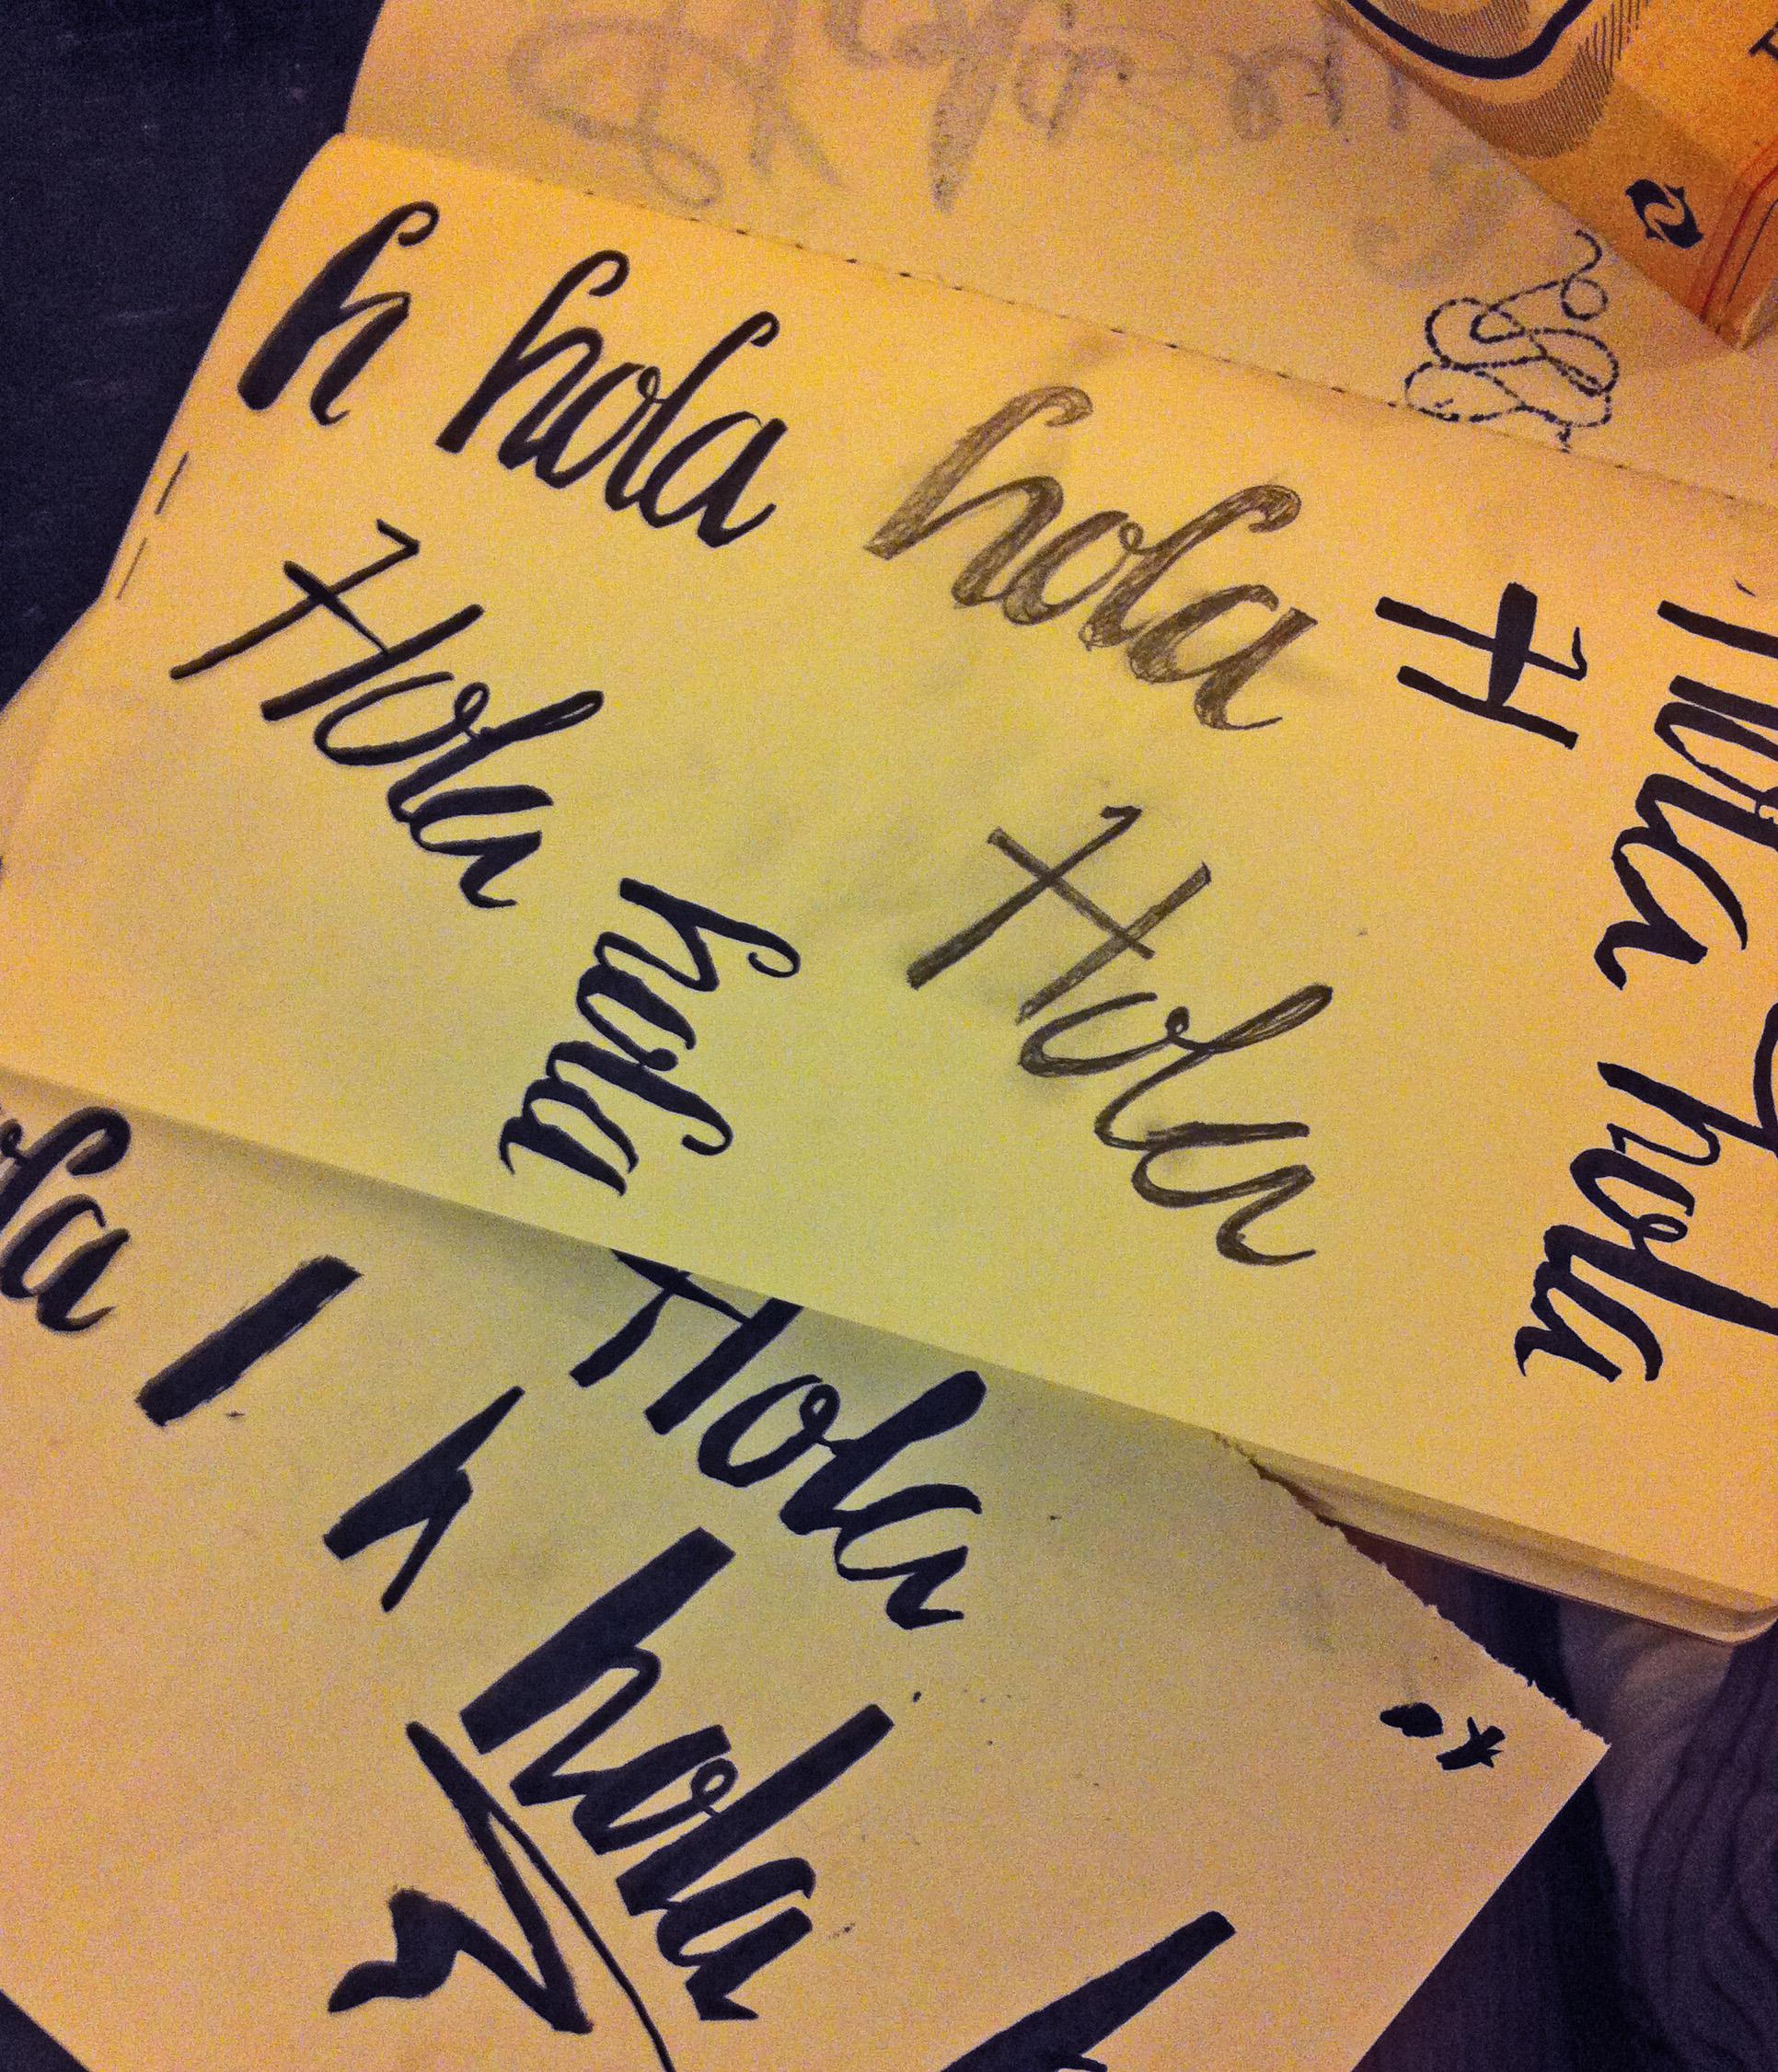 h hola hola H
Hola Hola
hola
Hola hola
la l h Hola
hola